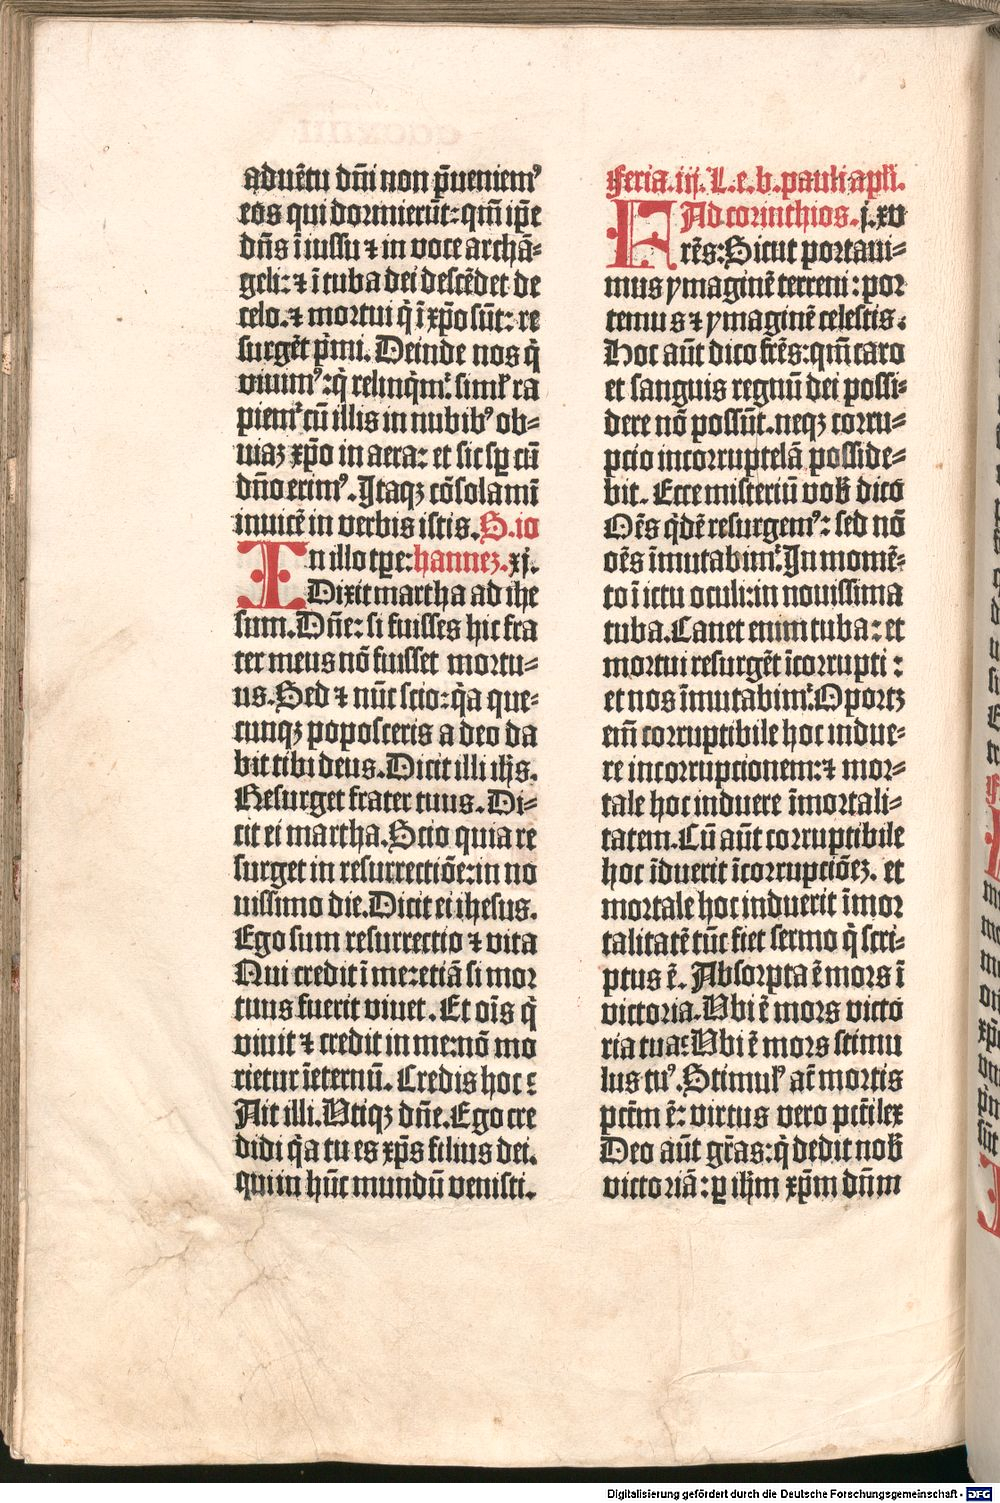 aduētu dn̄i non p̄ueniemꝰ
eos qui dormierūt: qm̄ ip̄e
dn̄s ī iussu ⁊ in voce archā⸗
geli: ⁊ ī tuba dei descēdet de
celo. ⁊ mortui q̄ ī xp̄o sūt: re
surgēt p̄mi. Deinde nos q̄
viuimꝰ: q̄ relinq̄mᷣ: simĺ ra
piemᷣ cū illis in nubibꝰ ob⸗
uiaꝫ xp̄o in aera: et sic sꝑ cū
dn̄o erimꝰ. Itaqꝫ cōsolamī
inuicē in verbis istis. S. io
In illo tꝑe: hannez. xj.
Dixit martha ad ihe
sum. Dn̄e: si fuisses hic fra
ter meus nō fuisset mortu⸗
us. Sed ⁊ nūc scio: q̄a que⸗
cunqꝫ poposceris a deo da
bit tibi deus. Dicit illi ih̄s.
Resurget frater tuus. Di⸗
cit ei martha. Scio quia re
surget in resurrectiōe: in no
uissimo die. Dicit ei ihesus.
Ego sum resurrectio ⁊ vita
Qui credit ī me: etiā si mor
tuus fuerit viuet. Et oīs q̄
viuit ⁊ credit in me: nō mo
rietur īeternū. Credis hoc :
Ait illi. Vtiqꝫ dn̄e. Ego cre
didi q̄a tu es xp̄s filius dei.
qui in hūc mundū venisti.
Feria. iij. L. e. b. pauli apl̄i.
Ad corinthios. j. xv
Frēs: Sicut portaui⸗
mus ymaginē terreni: por
temus ⁊ ymaginē celestis.
Hoc aūt dico frēs: qm̄ caro
et sanguis regnū dei possi⸗
dere nō possūt. neqꝫ corru⸗
pcio incorruptelā posside⸗
bit. Ecce misteriū vob̄ dico
Oēs q̄dē resurgemꝰ: sed nō
oēs īmutabimᷣ. In momē⸗
to ī ictu oculi: in nouissima
tuba. Canet enim tuba: et
mortui resurgēt īcorrupti :
et nos īmutabimᷣ. Oportꝫ
em̄ corruptibile hoc indue⸗
re incorrupcionem: ⁊ mor⸗
tale hoc induere īmortali⸗
tatem. Cū aūt corruptibile
hoc īduerit īcorrupciōeꝫ. et
mortale hoc induerit īmor
talitatē tūc fiet sermo q̄ scri⸗
ptus ē. Absorpta ē mors ī
victoria. Vbi ē mors victo
ria tua: Vbi ē mors stimu
lus tuꝰ. Stimulꝰ at̄ mortis
pctm̄ ē: virtus vero pcti lex
Deo aūt gr̄as: q̄ dedit nob̄
victoriā: ꝑ ih̄m xp̄m dn̄m
Digitalisierung gefördert durch die Deutsche Forschungsgemeinschaft - DFG